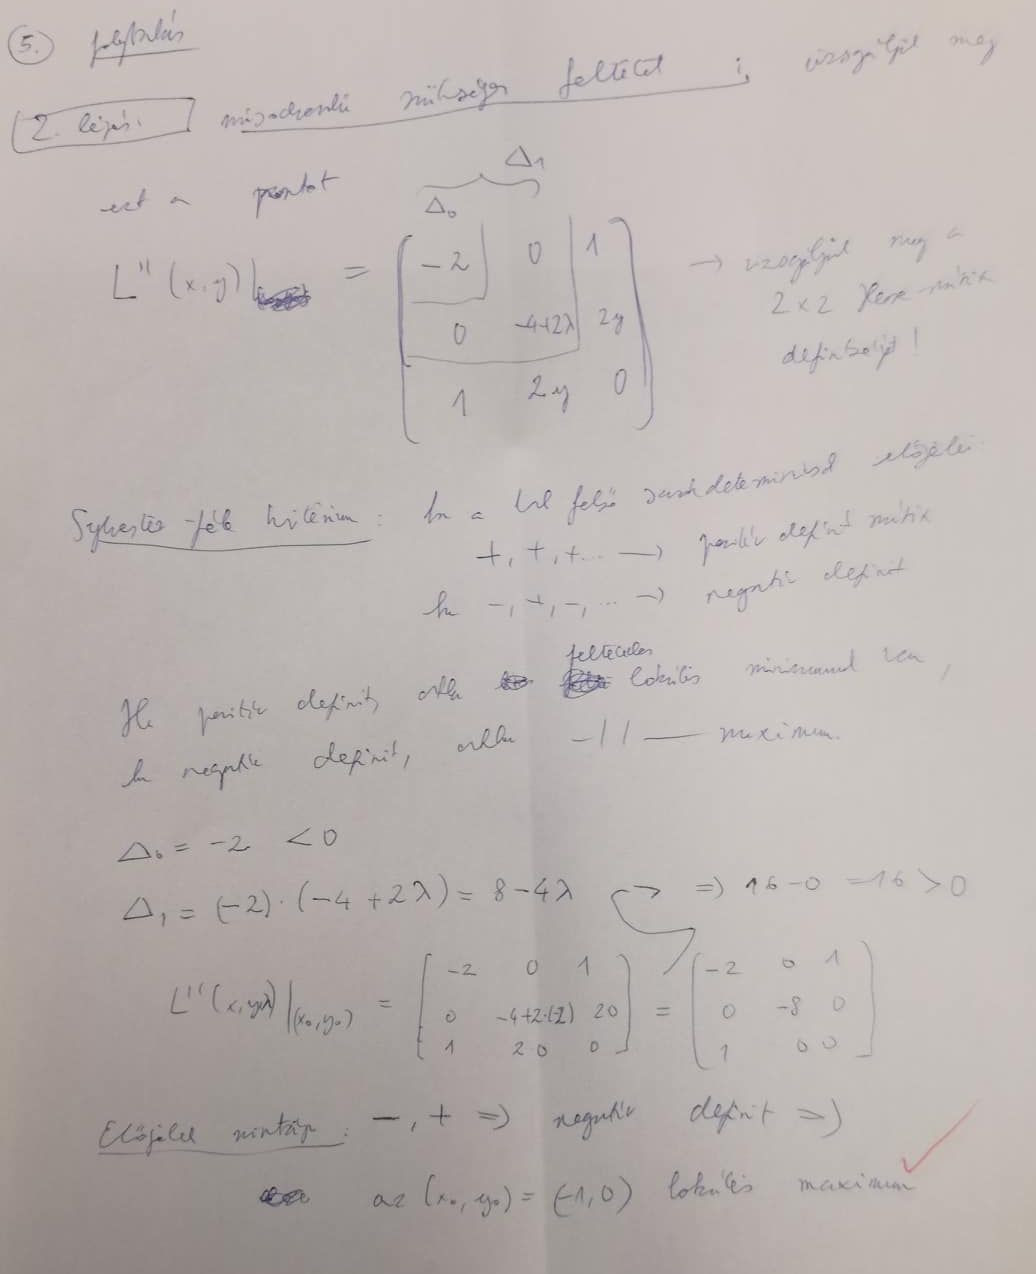 5. folytatás
2. lépés: másodrendű szükséges feltétel : vizsgáljuk meg
ezt a pontot
Δ₁
Δ₀
L''(x,y)| = [ -2 0 1 ; 0 -4+2λ 2y ; 1 2y 0 ] → vizsgáljuk meg a
2×2 Hesse mátrix
definitségét!
Sylvester-féle kritérium: ha a bal felső sarokdetermináns előjelei
+, +, +... → pozitív definit mátrix
ha -, +, -, ... → negatív definit
feltételes
Ha pozitív definit, akkor lokális minimum van,
ha negatív definit, akkor -||- maximum.
Δ₀ = -2 < 0
Δ₁ = (-2)·(-4+2λ) = 8-4λ => 16-0 = 16 > 0
L''(x,y,λ)|(x₀,y₀) = [ -2 0 1 ; 0 -4+2·(-2) 2·0 ; 1 2·0 0 ] = [ -2 0 1 ; 0 -8 0 ; 1 0 0 ]
Előjelek mintája: -, + => negatív definit =>
az (x₀,y₀) = (-1,0) lokális maximum